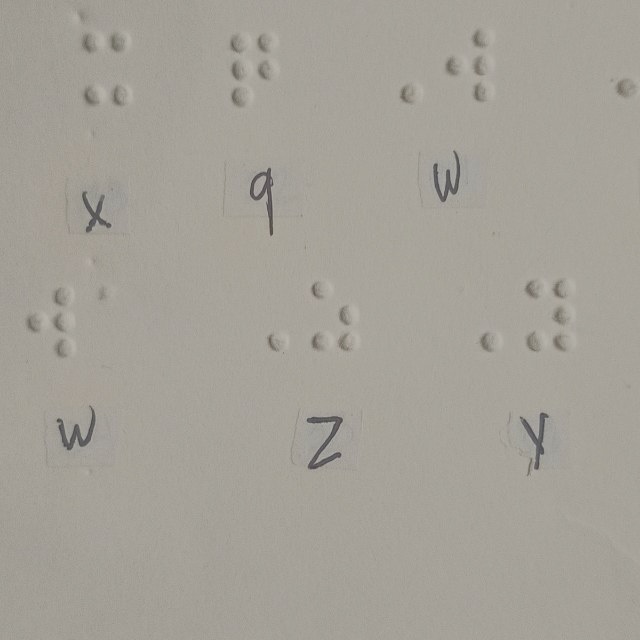 ⠭ ⠟ ⠠⠺
x q W
⠺ ⠠⠵ ⠠⠽
w Z Y